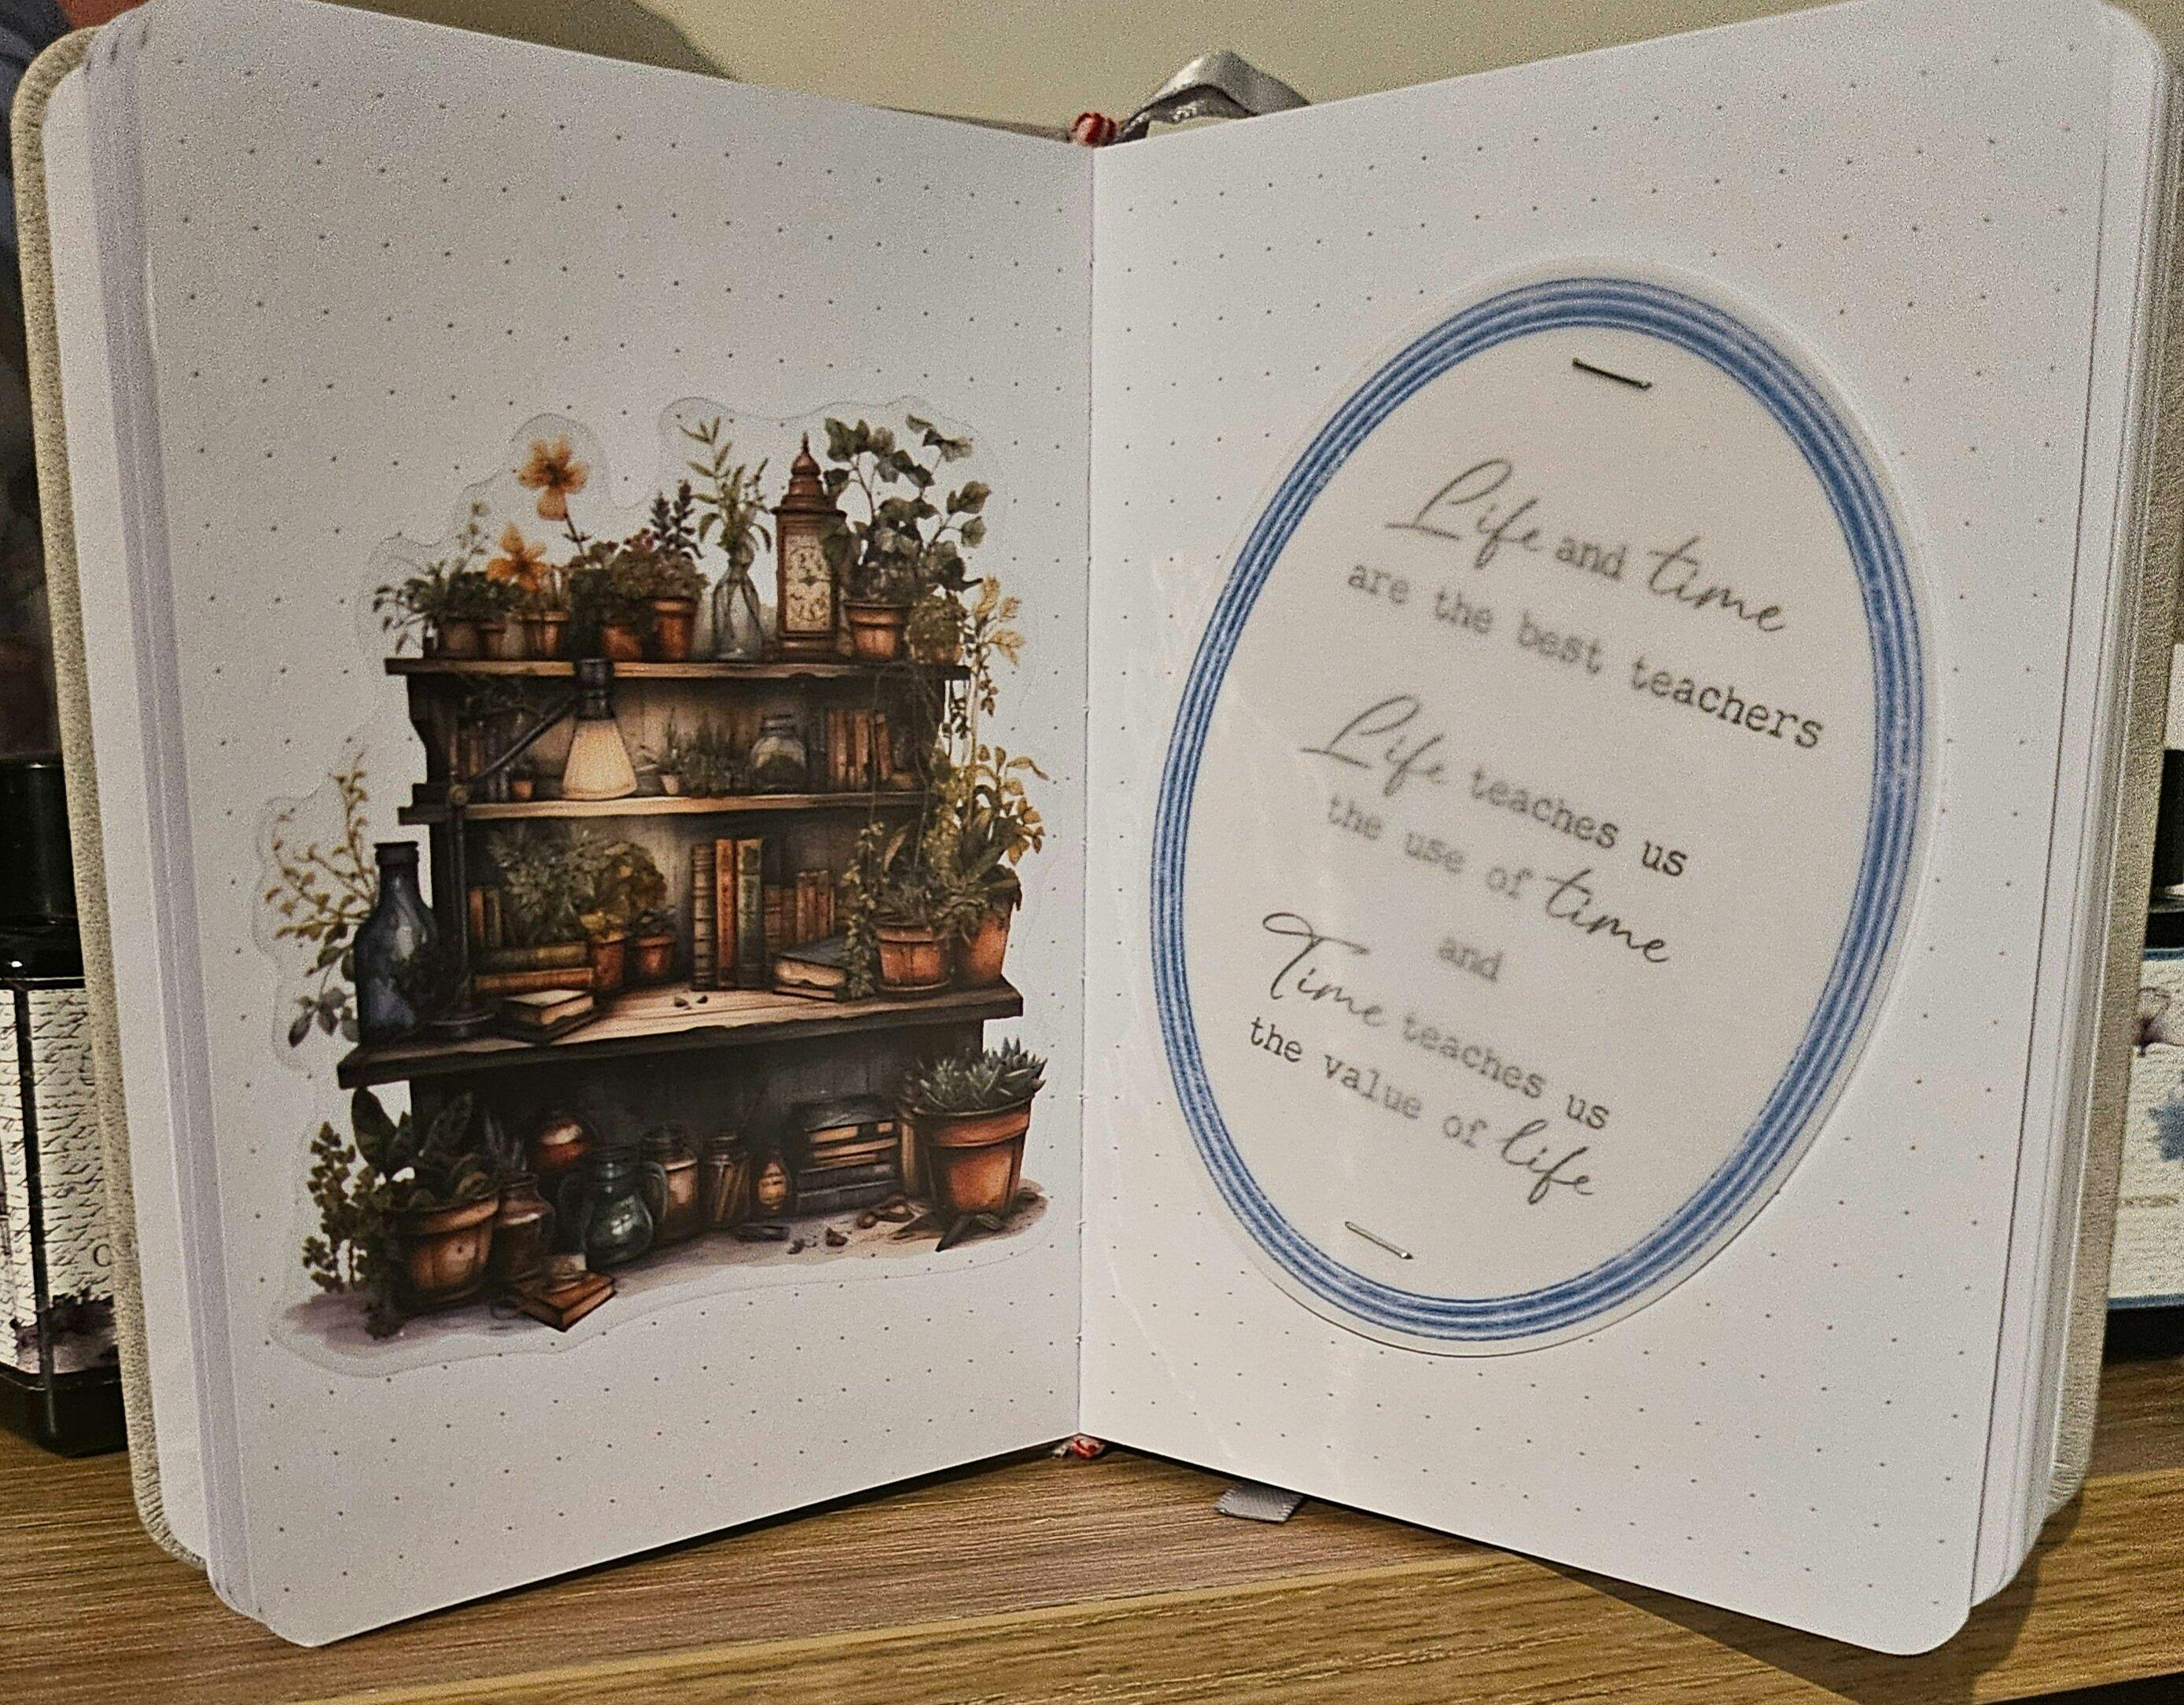 Life and time
are the best teachers
Life teaches us
the use of time
and
Time teaches us
the value of life